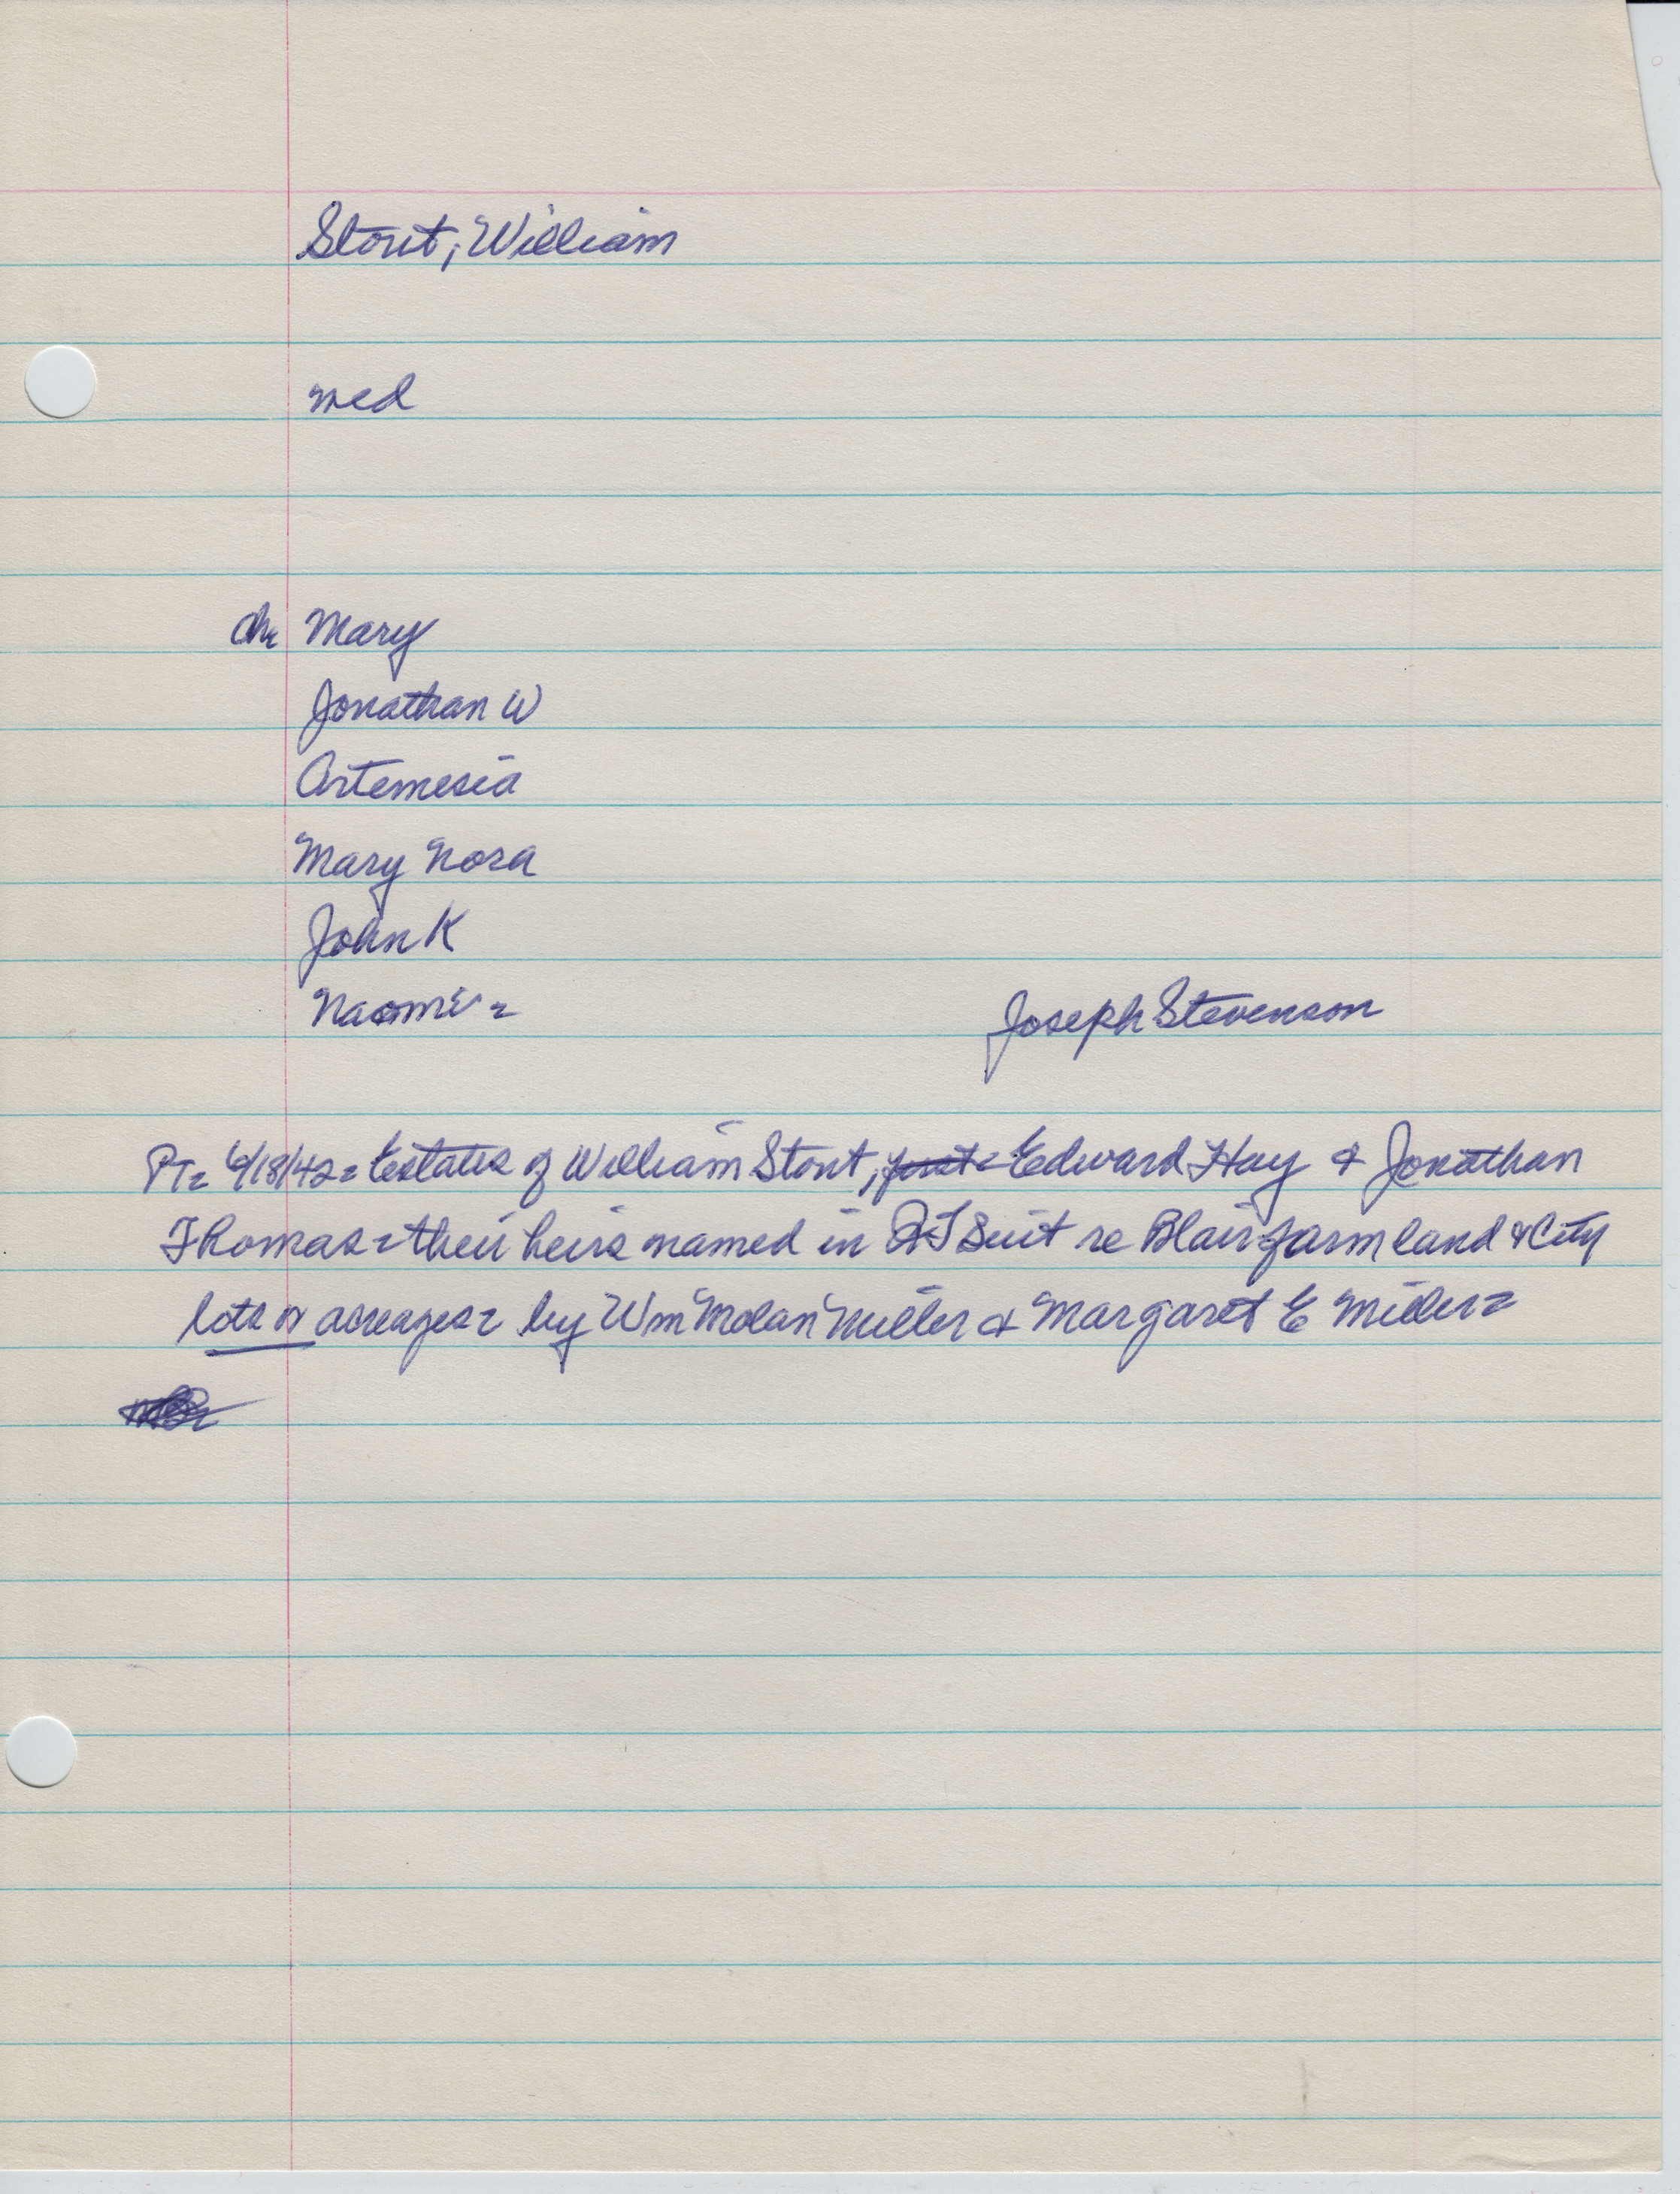 Stout, William
med
Ch- Mary
Jonathan W
Artemesia
Mary Nora
John K
Naomi - Joseph Stevenson
PT- 6/18/42 - Estates of William Stout, Edward Hay & Jonathan
Thomas - their heirs named in QT Suit re Blair farm land & City
lots or acreages - by Wm Molan Miller & Margaret E Miller -